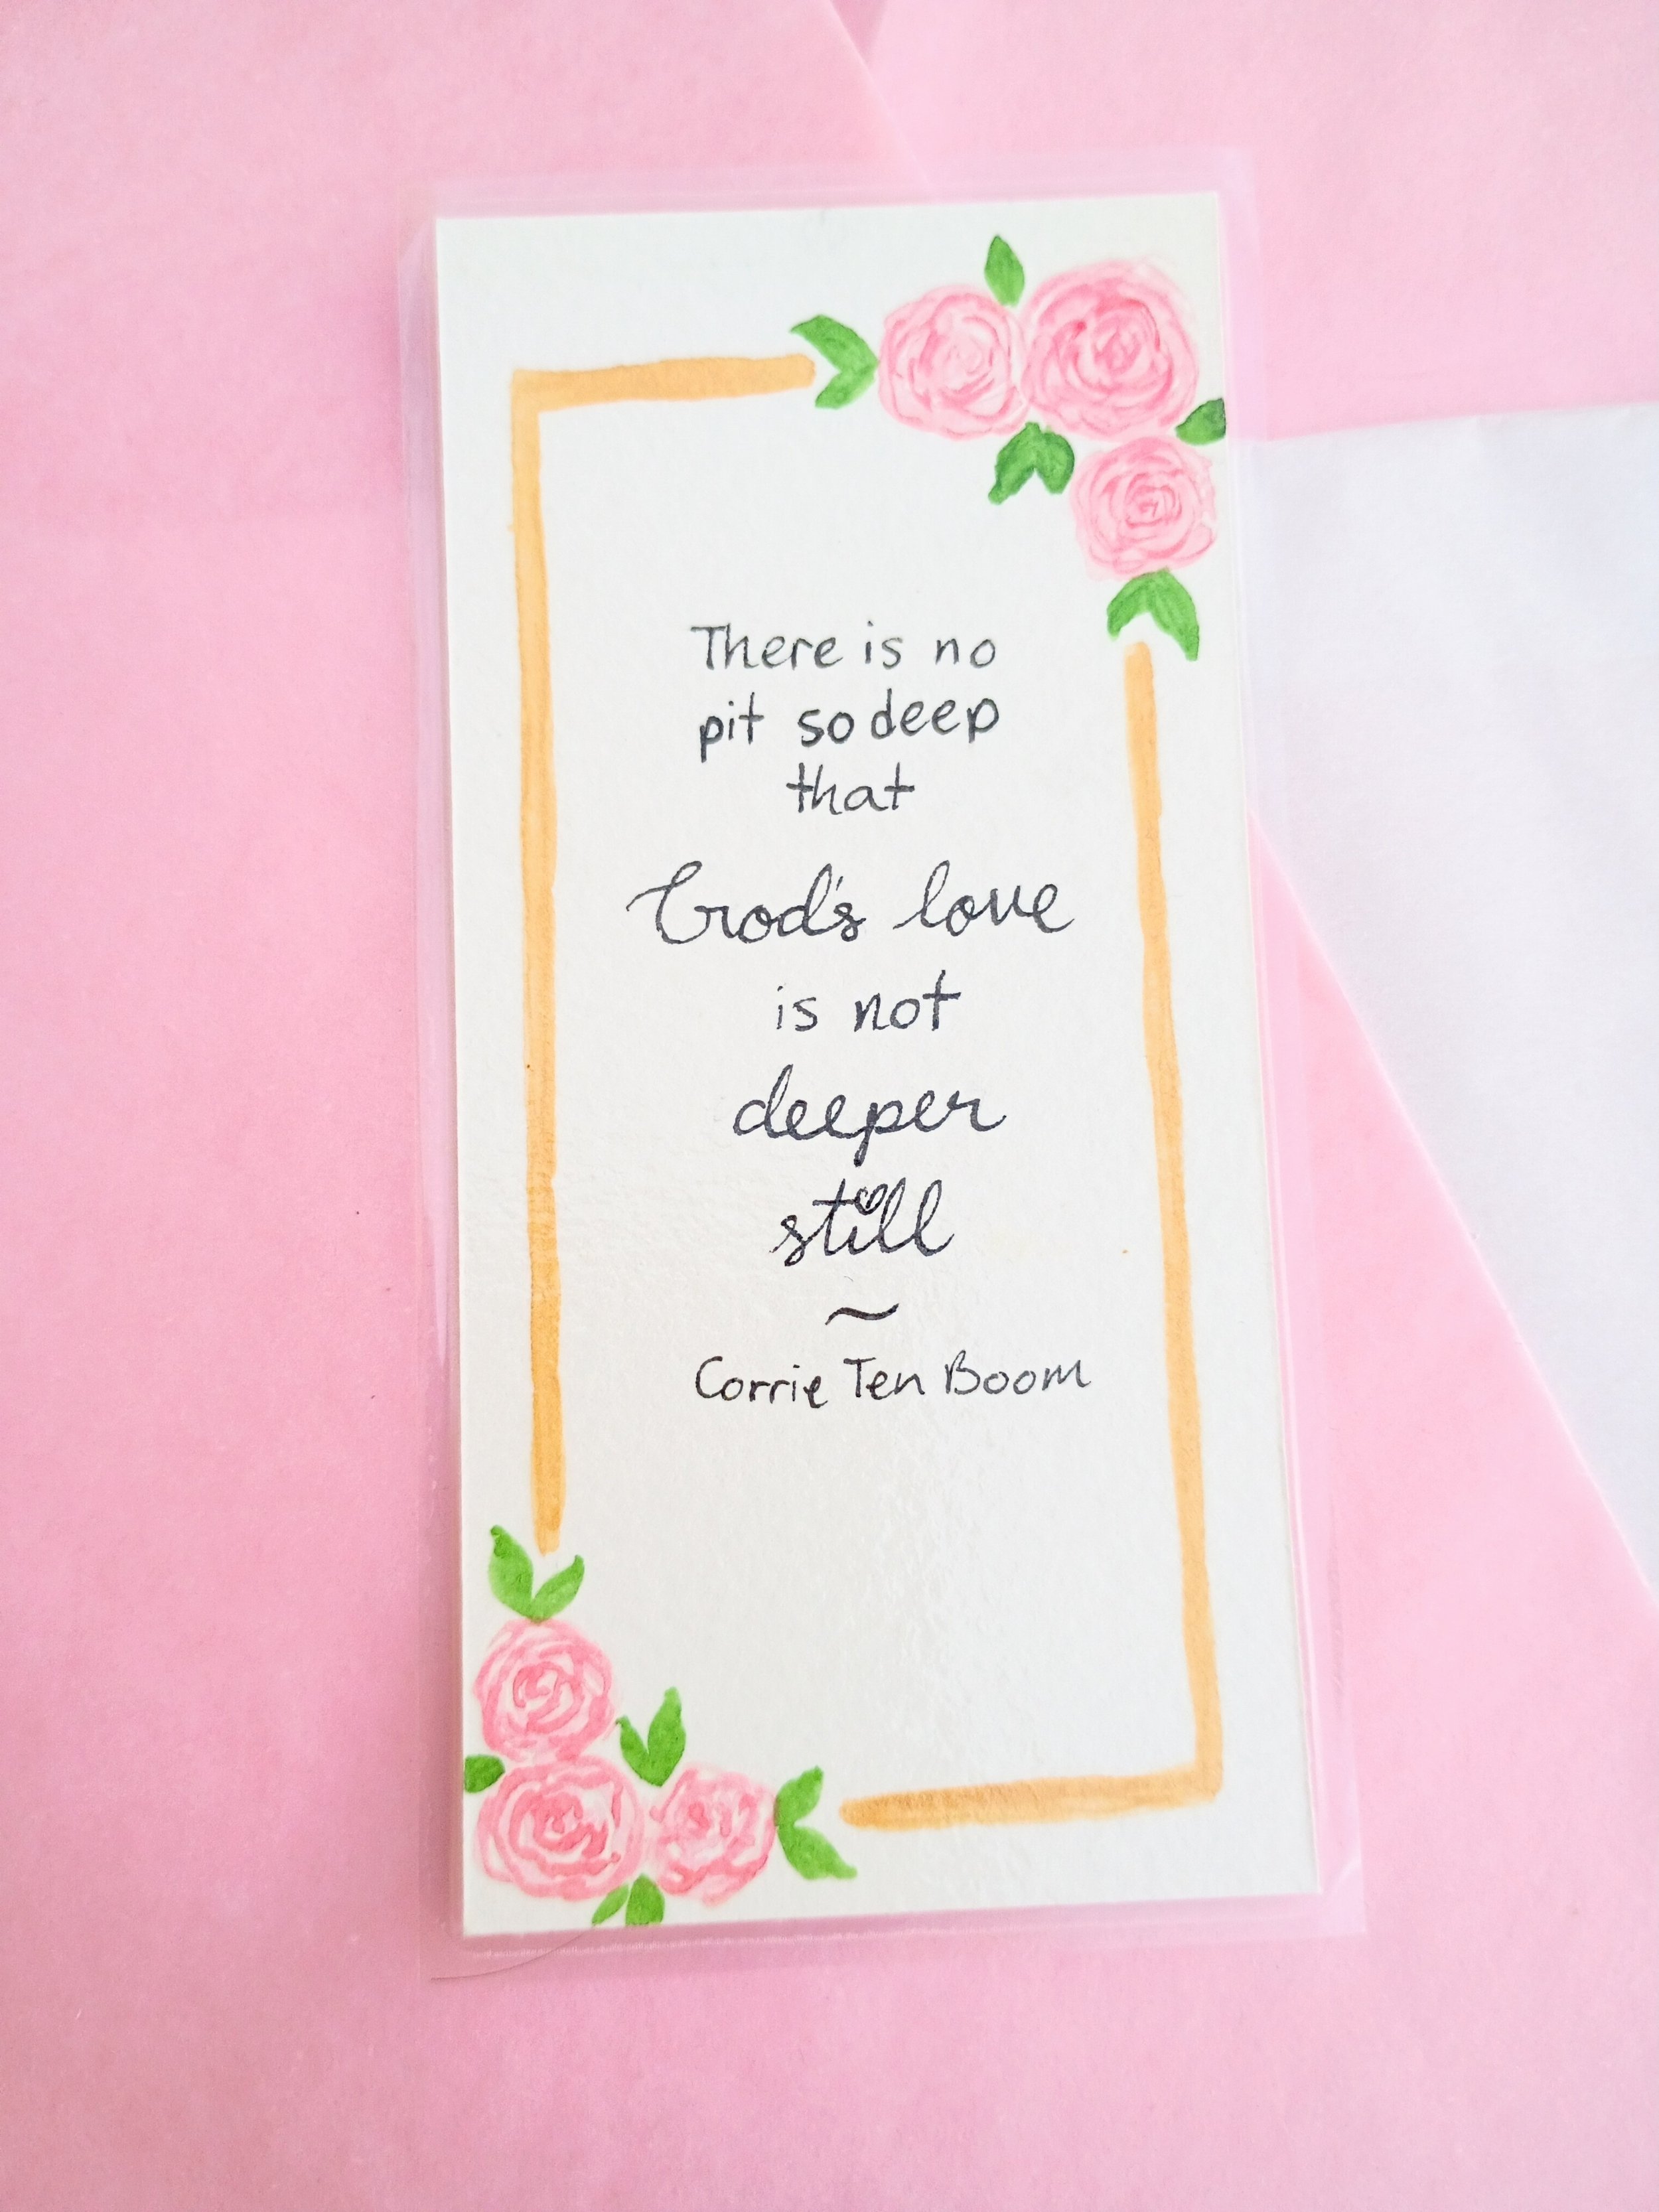 There is no
pit so deep
that
God's love
is not
deeper
still
~
Corrie Ten Boom